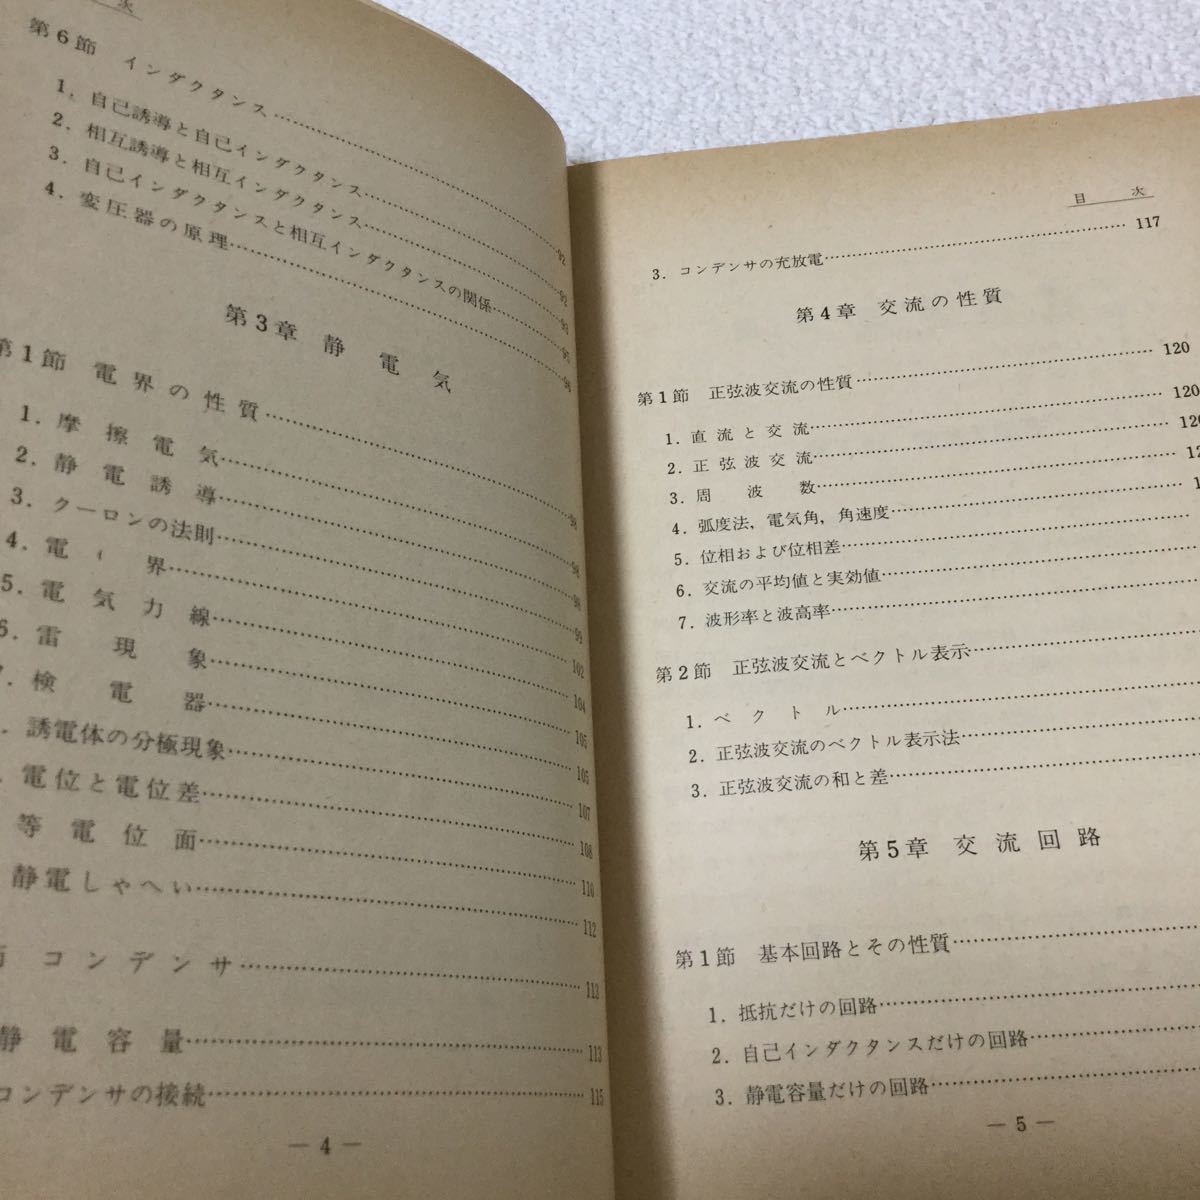 次
第6節 インダクタンス
1. 自己誘導と自己インダクタンス……92
2. 相互誘導と相互インダクタンス……92
3. 自己インダクタンスと相互インダクタンスの関係……93
4. 変圧器の原理……95
96
第3章 静電気
第1節 電界の性質……98
1. 摩擦電気……98
2. 静電誘導……98
3. クーロンの法則……99
4. 電界……102
5. 電気力線……104
6. 雷現象……105
7. 検電器……105
. 誘電体の分極現象……107
. 電位と電位差……108
等電位面……110
静電しゃへい……112
コンデンサ……113
静電容量……113
コンデンサの接続……115
— 4 —
目次
3. コンデンサの充放電……117
第4章 交流の性質
第1節 正弦波交流の性質……120
1. 直流と交流……120
2. 正弦波交流……120
3. 周波数……12
4. 弧度法, 電気角, 角速度……1
5. 位相および位相差……
6. 交流の平均値と実効値……
7. 波形率と波高率……
第2節 正弦波交流とベクトル表示……
1. ベクトル……
2. 正弦波交流のベクトル表示法……
3. 正弦波交流の和と差……
第5章 交流回路
第1節 基本回路とその性質……
1. 抵抗だけの回路……
2. 自己インダクタンスだけの回路……
3. 静電容量だけの回路……
— 5 —